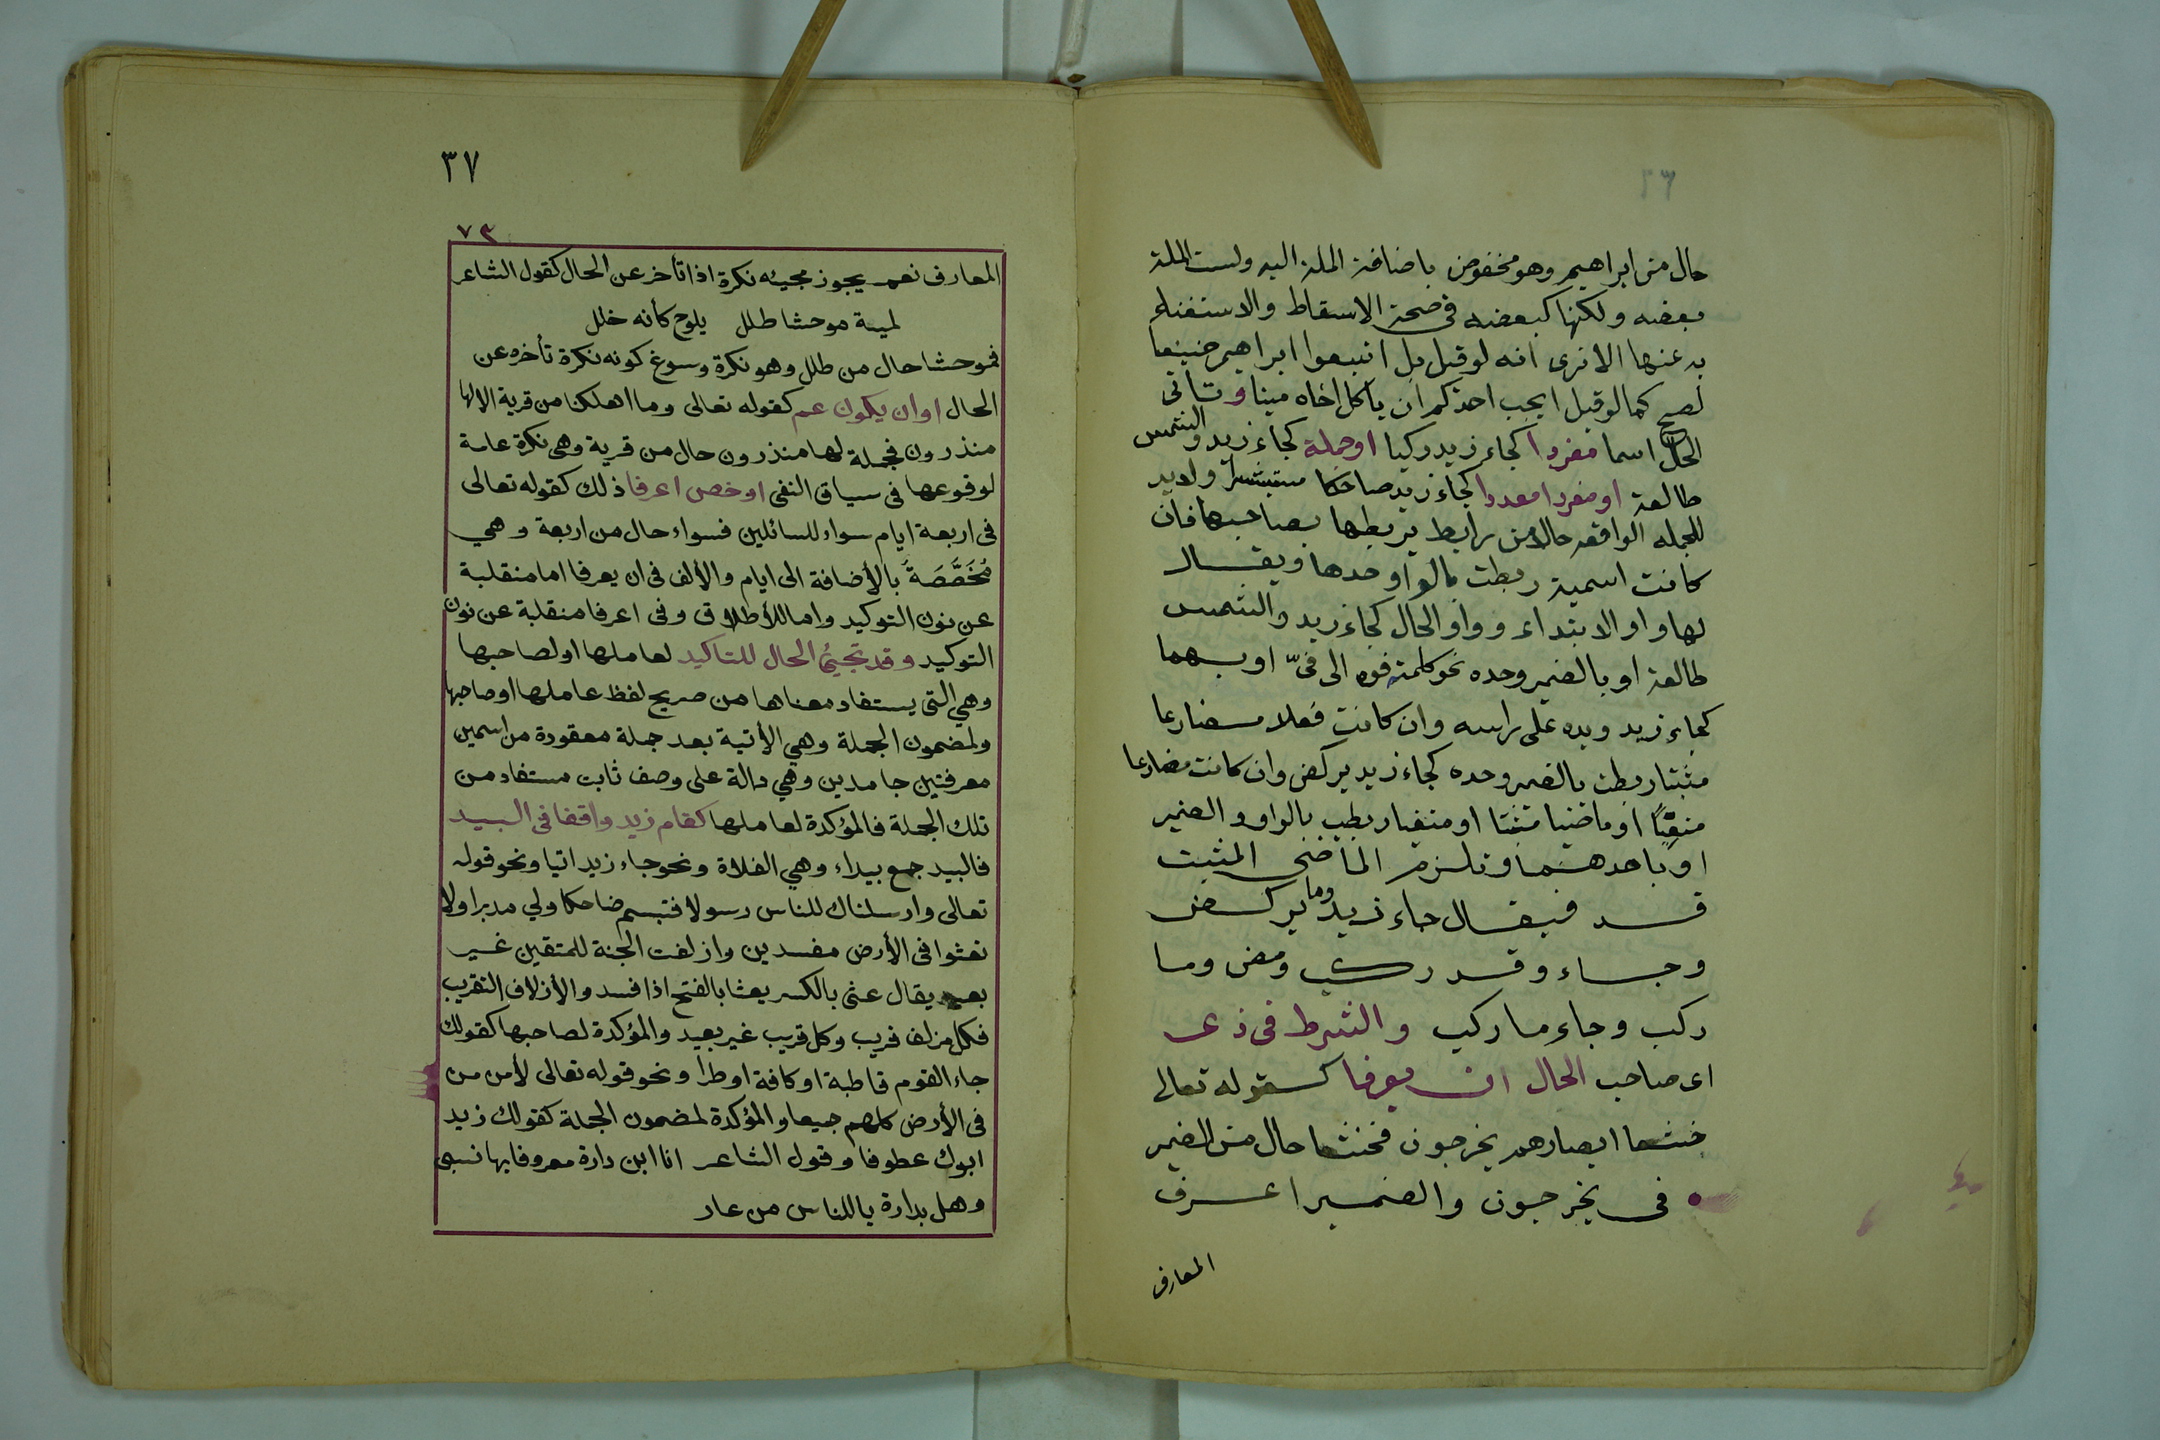 ٣٦
حال من ابراهيم وهو مخفوض باضافة الملة اليه وليست الملة
بعضه ولكنها كبعضه في صحة الاسقاط والاستغناء
به عنها الا ترى انه لو قيل بل اتبعوا ابراهيم حنيفا
لصح كما لو قيل ايحب احدكم ان ياكل اخاه ميتا وتاتى
الحال اسما مفردا كجاء زيد ركبا او جملة كجاء زيد والشمس
طالعة او مفردا معددا كجاء زيد ضاحكا مستبشرا ولابد
للجمله الواقعه حالا من رابط يربطها بصاحبها فان
كانت اسمية ربطت بالواو وحدها ويقال
لها واو الابتداء وواو الحال كجاء زيد والشمس
طالعة او بالضمير وحده نحو كلمته فوه الى فيّ او بهما
كجاء زيد ويده على راسه وان كانت فعلا مضارعا
مثبتا ربطت بالضمير وحده كجاء زيد يركض وان كانت مضارعا
منفيًا او ماضيا مثبتا او منفيا ربطت بالواو والضمير
او باحدهما وتلزم الماضى المثبت
قد فيقال جاء زيد وما يركض
وجاء وقد ركب ومضى وما
ركب وجاء ما ركب والشرط فى ذى
اى صاحب الحال ان يعرفا كقوله تعالى
خشعا ابصارهم يخرجون فخشعا حال من الضمير
فى يخرجون والضمير اعرف
المعارف
٣٧
٧٣
المعارف نعم يجوز مجيئه نكرة اذا تأخر عن الحال كقول الشاعر
لمية موحشا طلل يلوح كأنه خلل
فموحشا حال من طلل وهو نكرة وسوغ كونه نكرة تأخره عن
الحال او ان يكون عم كقوله تعالى وما اهلكنا من قرية الا لها
منذرون فجملة لها منذرون حال من قرية وهى نكرة عامة
لوقوعها فى سياق النفى او خص اعرفا ذلك كقوله تعالى
فى اربعة ايام سواء للسائلين فسواء حال من اربعة وهي
مُخَصَّصَةً بالأضافة الى ايام والألف فى ان يعرفا اما منقلبة
عن نون التوكيد واما للأطلاق وفى اعرفا منقلبة عن نون
التوكيد وقد تجيئُ الحال للتاكيد لعاملها او لصاحبها
وهي التى يستفاد معناها من صريح لفظ عاملها او صاحبها
ولمضمون الجملة وهي الأتية بعد جملة معقودة من اسمين
معرفتين جامدين وهي دالة على وصف ثابت مستفاد من
تلك الجملة فالمؤكدة لعاملها كقام زيد واقفا فى البيد
فالبيد جمع بيداء وهي الفلاة ونحو جاء زيد اتيا ونحو قوله
تعالى وارسلناك للناس رسولا فتبسم ضاحكا ولي مدبرا ولا
تعثوا فى الأرض مفسدين وازلفت الجنة للمتقين غير
بعيد يقال عثى بالكسر يعثا بالفتح اذا فسد والأزلاف التقريب
فكل مزلف قريب وكل قريب غير بعيد والمؤكدة لصاحبها كقولك
جاء القوم قاطبة او كافة او طرا ونحو قوله تعالى لأمن من
فى الأرض كلهم جميعا والمؤكدة لمضمون الجملة كقولك زيد
ابوك عطوفا وقول الشاعر انا ابن دارة معروفا بها نسبى
وهل بدارة يا للناس من عار